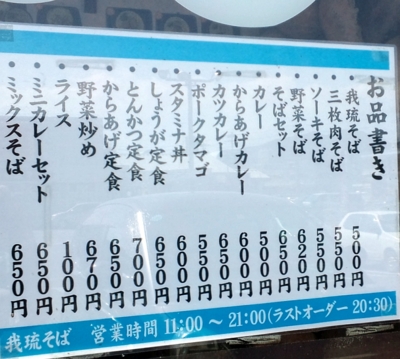 お品書き
我琉そば 500円
三枚肉そば 550円
ソーキそば 550円
野菜そば 620円
そばセット 650円
カレー 500円
からあげカレー 650円
カツカレー 600円
ポークタマゴ 550円
スタミナ丼 600円
しょうが定食 650円
とんかつ定食 700円
からあげ定食 650円
野菜炒め 670円
ライス 100円
ミニカレーセット 650円
ミックスそば 650円
我琉そば 営業時間 11:00 ～ 21:00(ラストオーダー 20:30)